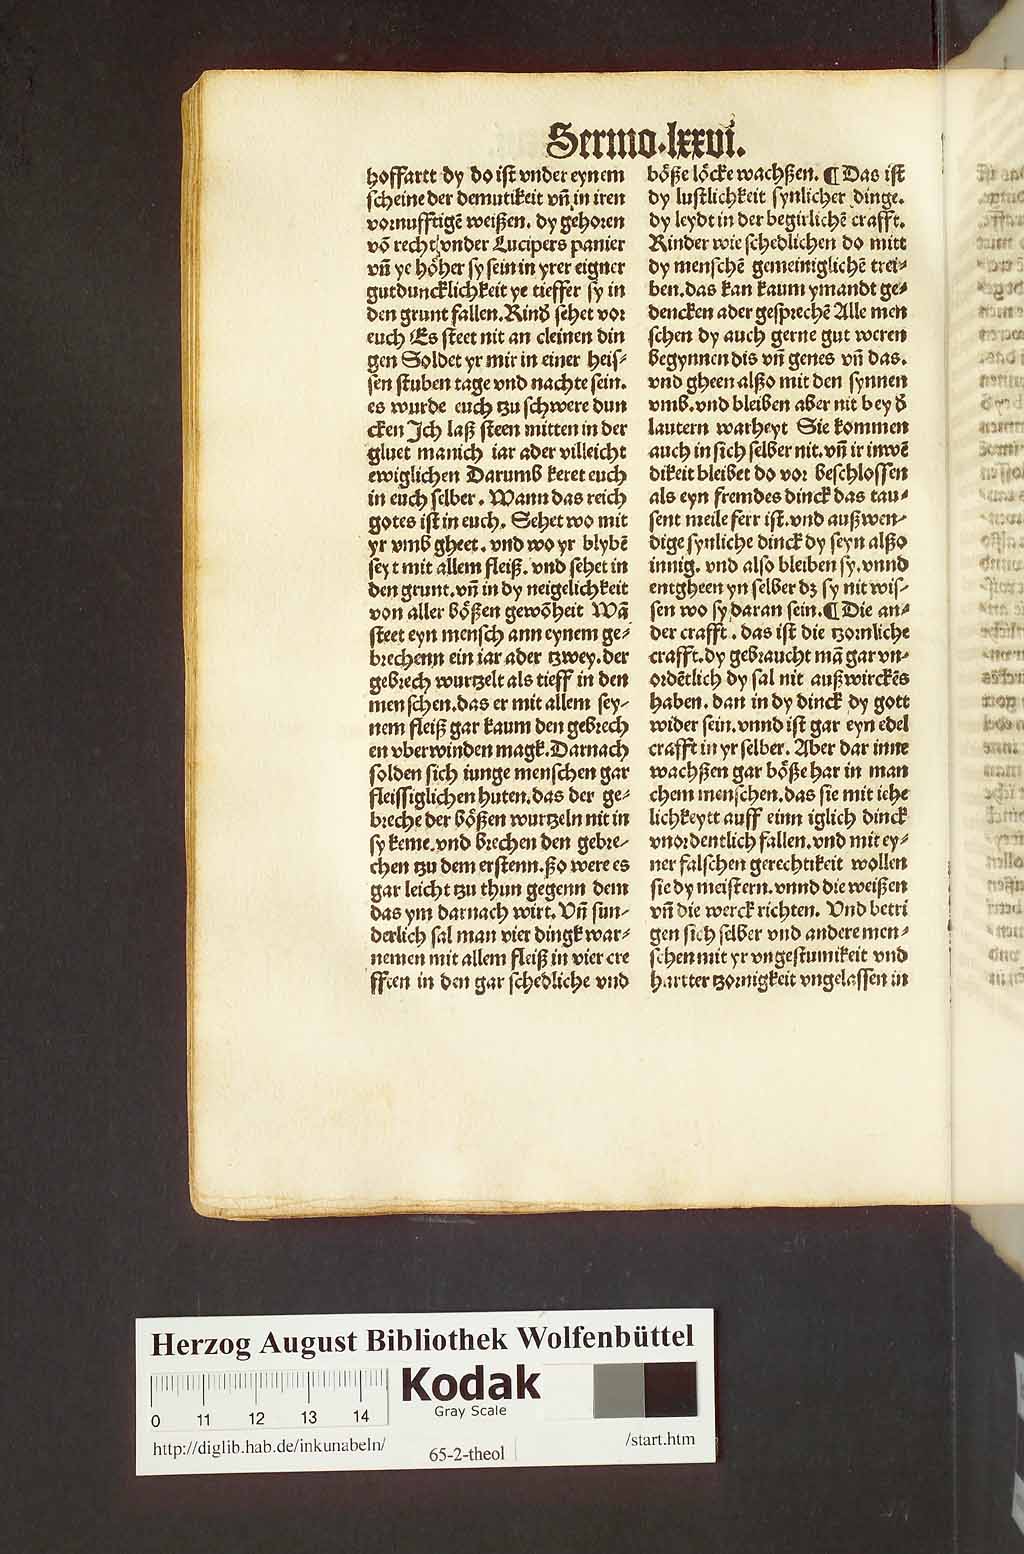 Sermo.lxxvi.
hoffartt dy do ist vnder eynem
scheine der demutikeit vn̄ in iren
vornufftigē weißen. dy gehoren
vō recht vnder Lucipers panier
vn̄ ye höher sy sein in yrer eigner
gutduncklichkeit ye tieffer sy in
den grunt fallen. Kind sehet vor
euch Es steet nit an cleinen din
gen Soldet yr mir in einer heis⸗
sen stuben tage vnd nachte sein.
es wurde euch tzu schwere dun
cken Ich laß steen mitten in der
gluet manich iar ader villeicht
ewiglichen Darumb keret euch
in euch selber. Wann das reich
gotes ist in euch. Sehet wo mit
yr vmb gheet. vnd wo yr blybē
seyt mit allem fleiß. vnd sehet in
den grunt. vn̄ in dy neigelichkeit
von aller bößen gewōheit Wā
steet eyn mensch ann eynem ge⸗
brechenn ein iar ader tzwey. der
gebrech wurtzelt als tieff in den
menschen. das er mit allem sey⸗
nem fleiß gar kaum den gebrech
en vberwinden magk. Darnach
solden sich iunge menschen gar
fleissiglichen huten. das der ge⸗
breche der bößen wurtzeln nit in
sy keme. vnd brechen den gebre⸗
chen tzu dem erstenn. ßo were es
gar leicht tzu thun gegenn dem
das ym darnach wirt. Vn̄ sun⸗
derlich sal man vier dingk war⸗
nemen mit allem fleiß in vier cre
fften in den gar schedliche vnd
böße löcke wachßen. ¶ Das ist
dy lustlichkeit synlicher dinge.
dy leydt in der begirlichē crafft.
Kinder wie schedlichen do mitt
dy menschē gemeiniglichē trei⸗
ben. das kan kaum ymandt ge⸗
dencken ader gesprechē Alle men
schen dy auch gerne gut weren
begynnen dis vn̄ genes vn̄ das.
vnd gheen alßo mit den synnen
vmb. vnd bleiben aber nit bey d̕
lautern warheyt Sie kommen
auch in sich selber nit. vn̄ ir inwē
dikeit bleibet do vor beschlossen
als eyn fremdes dinck das tau⸗
sent meile ferr ist. vnd außwen⸗
dige synliche dinck dy seyn alßo
innig. vnd also bleiben sy. vnnd
entgheen yn selber dz sy nit wis⸗
sen wo sy daran sein. ¶ Die an⸗
der crafft. das ist die tzornliche
crafft. dy gebraucht mā gar vn⸗
ordētlich dy sal nit außwirckēs
haben. dan in dy dinck dy gott
wider sein. vnnd ist gar eyn edel
crafft in yr selber. Aber dar inne
wachßen gar böße har in man
chem menschen. das sie mit iehe
lichkeytt auff einn iglich dinck
vnordentlich fallen. vnd mit ey⸗
ner falschen gerechtikeit wollen
sie dy meistern. vnnd die weißen
vn̄ die werck richten. Vnd betri
gen sich selber vnd andere men⸗
schen mit yr vngestumikeit vnd
hartter tzornigkeit vngelassen in
Herzog August Bibliothek Wolfenbüttel
Kodak
Gray Scale
0 11 12 13 14
http://diglib.hab.de/inkunabeln/
65-2-theol
/start.htm